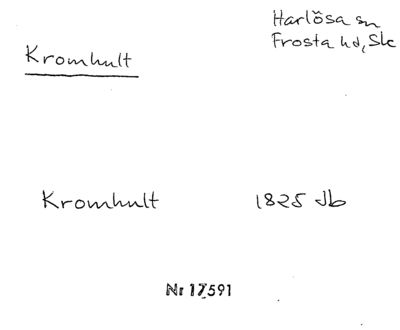 Harlösa sn
Frosta hd, Sk
Kromhult
Kromhult 1825 Jb
Nr 17591